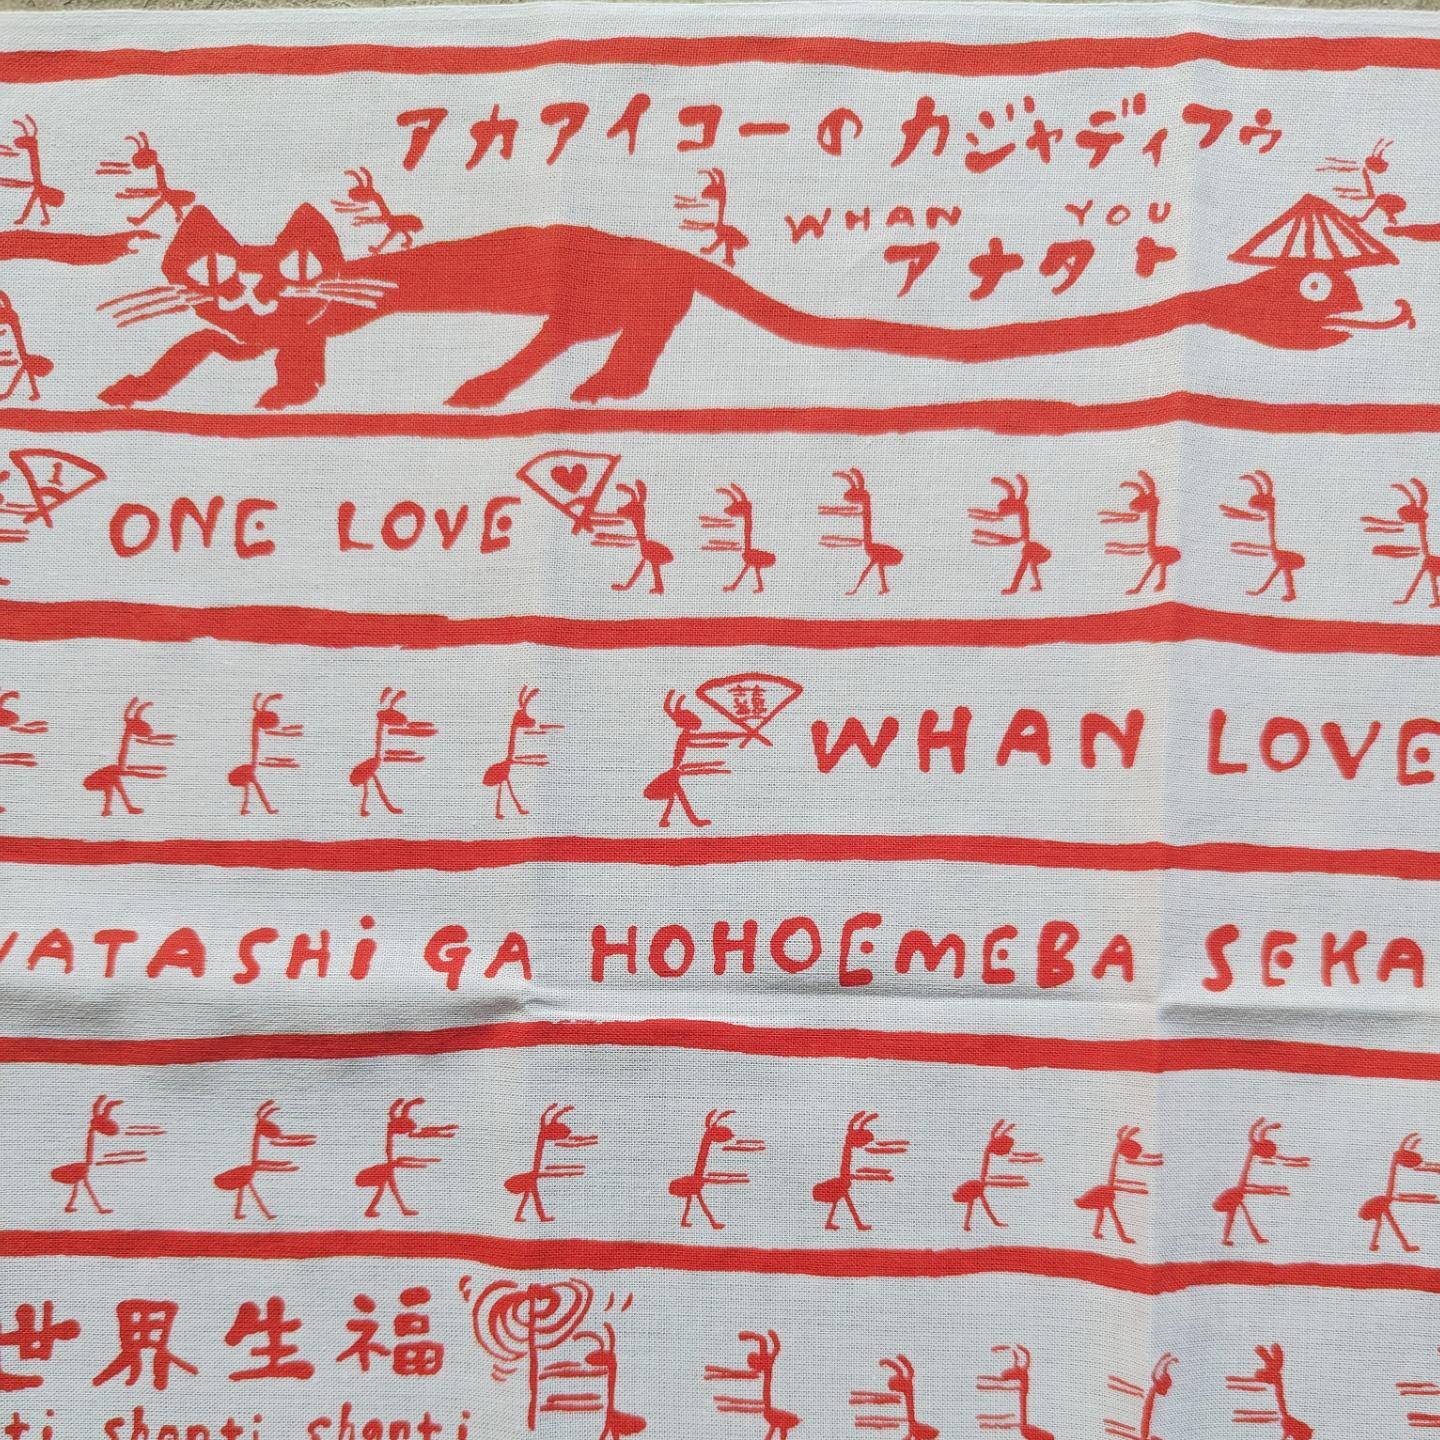 アカアイコーの カジャディフゥ
WHAN YOU
アナタト
1 ONE LOVE
囍 WHAN LOVE
WATASHi GA HOHOEMEBA SEKA
世界生福
ti shanti shanti